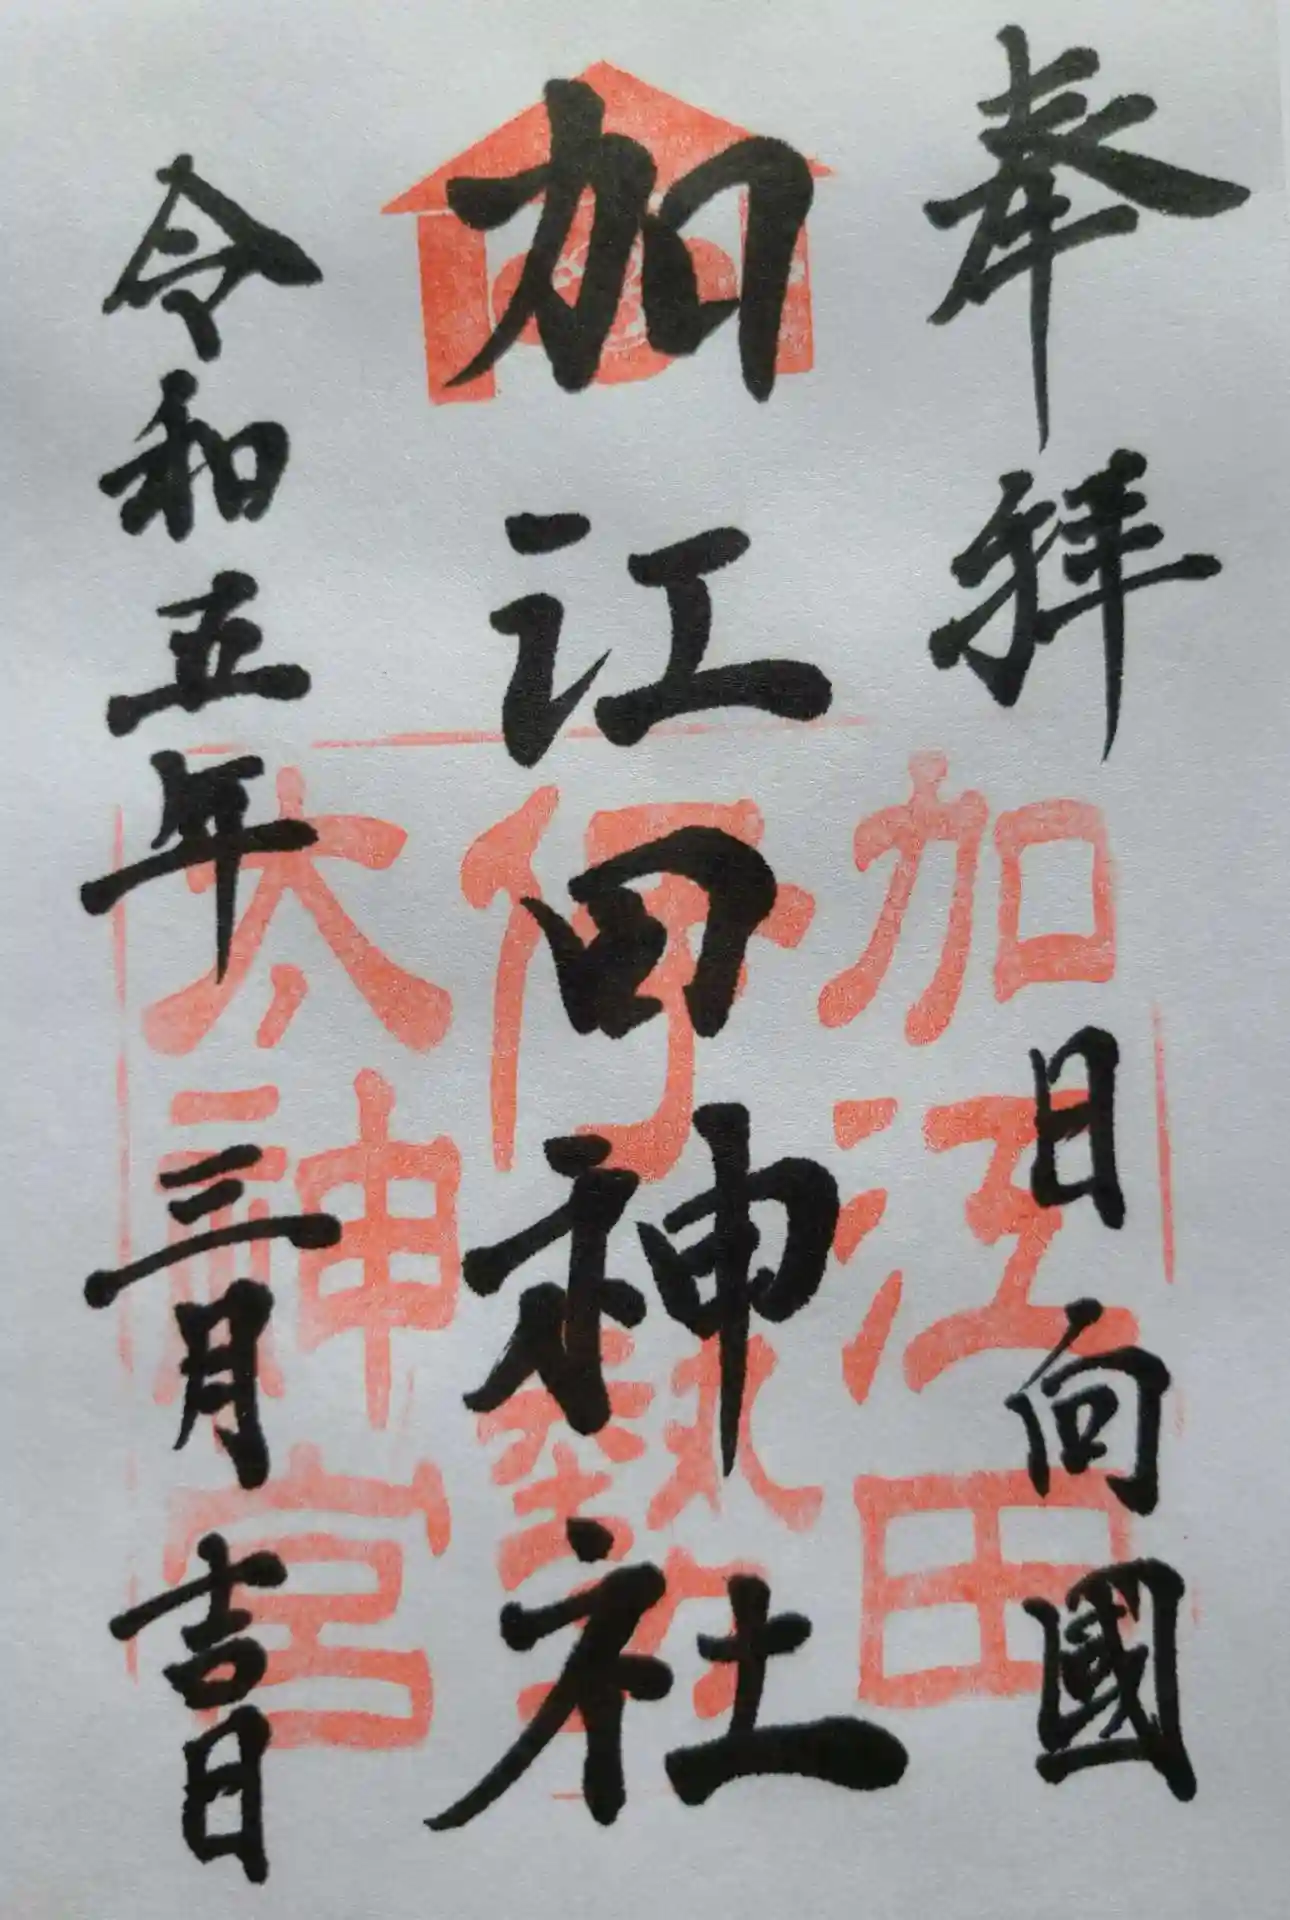 奉拝
日向國
加江田神社
令和五年三月吉日
加江田
伊勢
大神宮